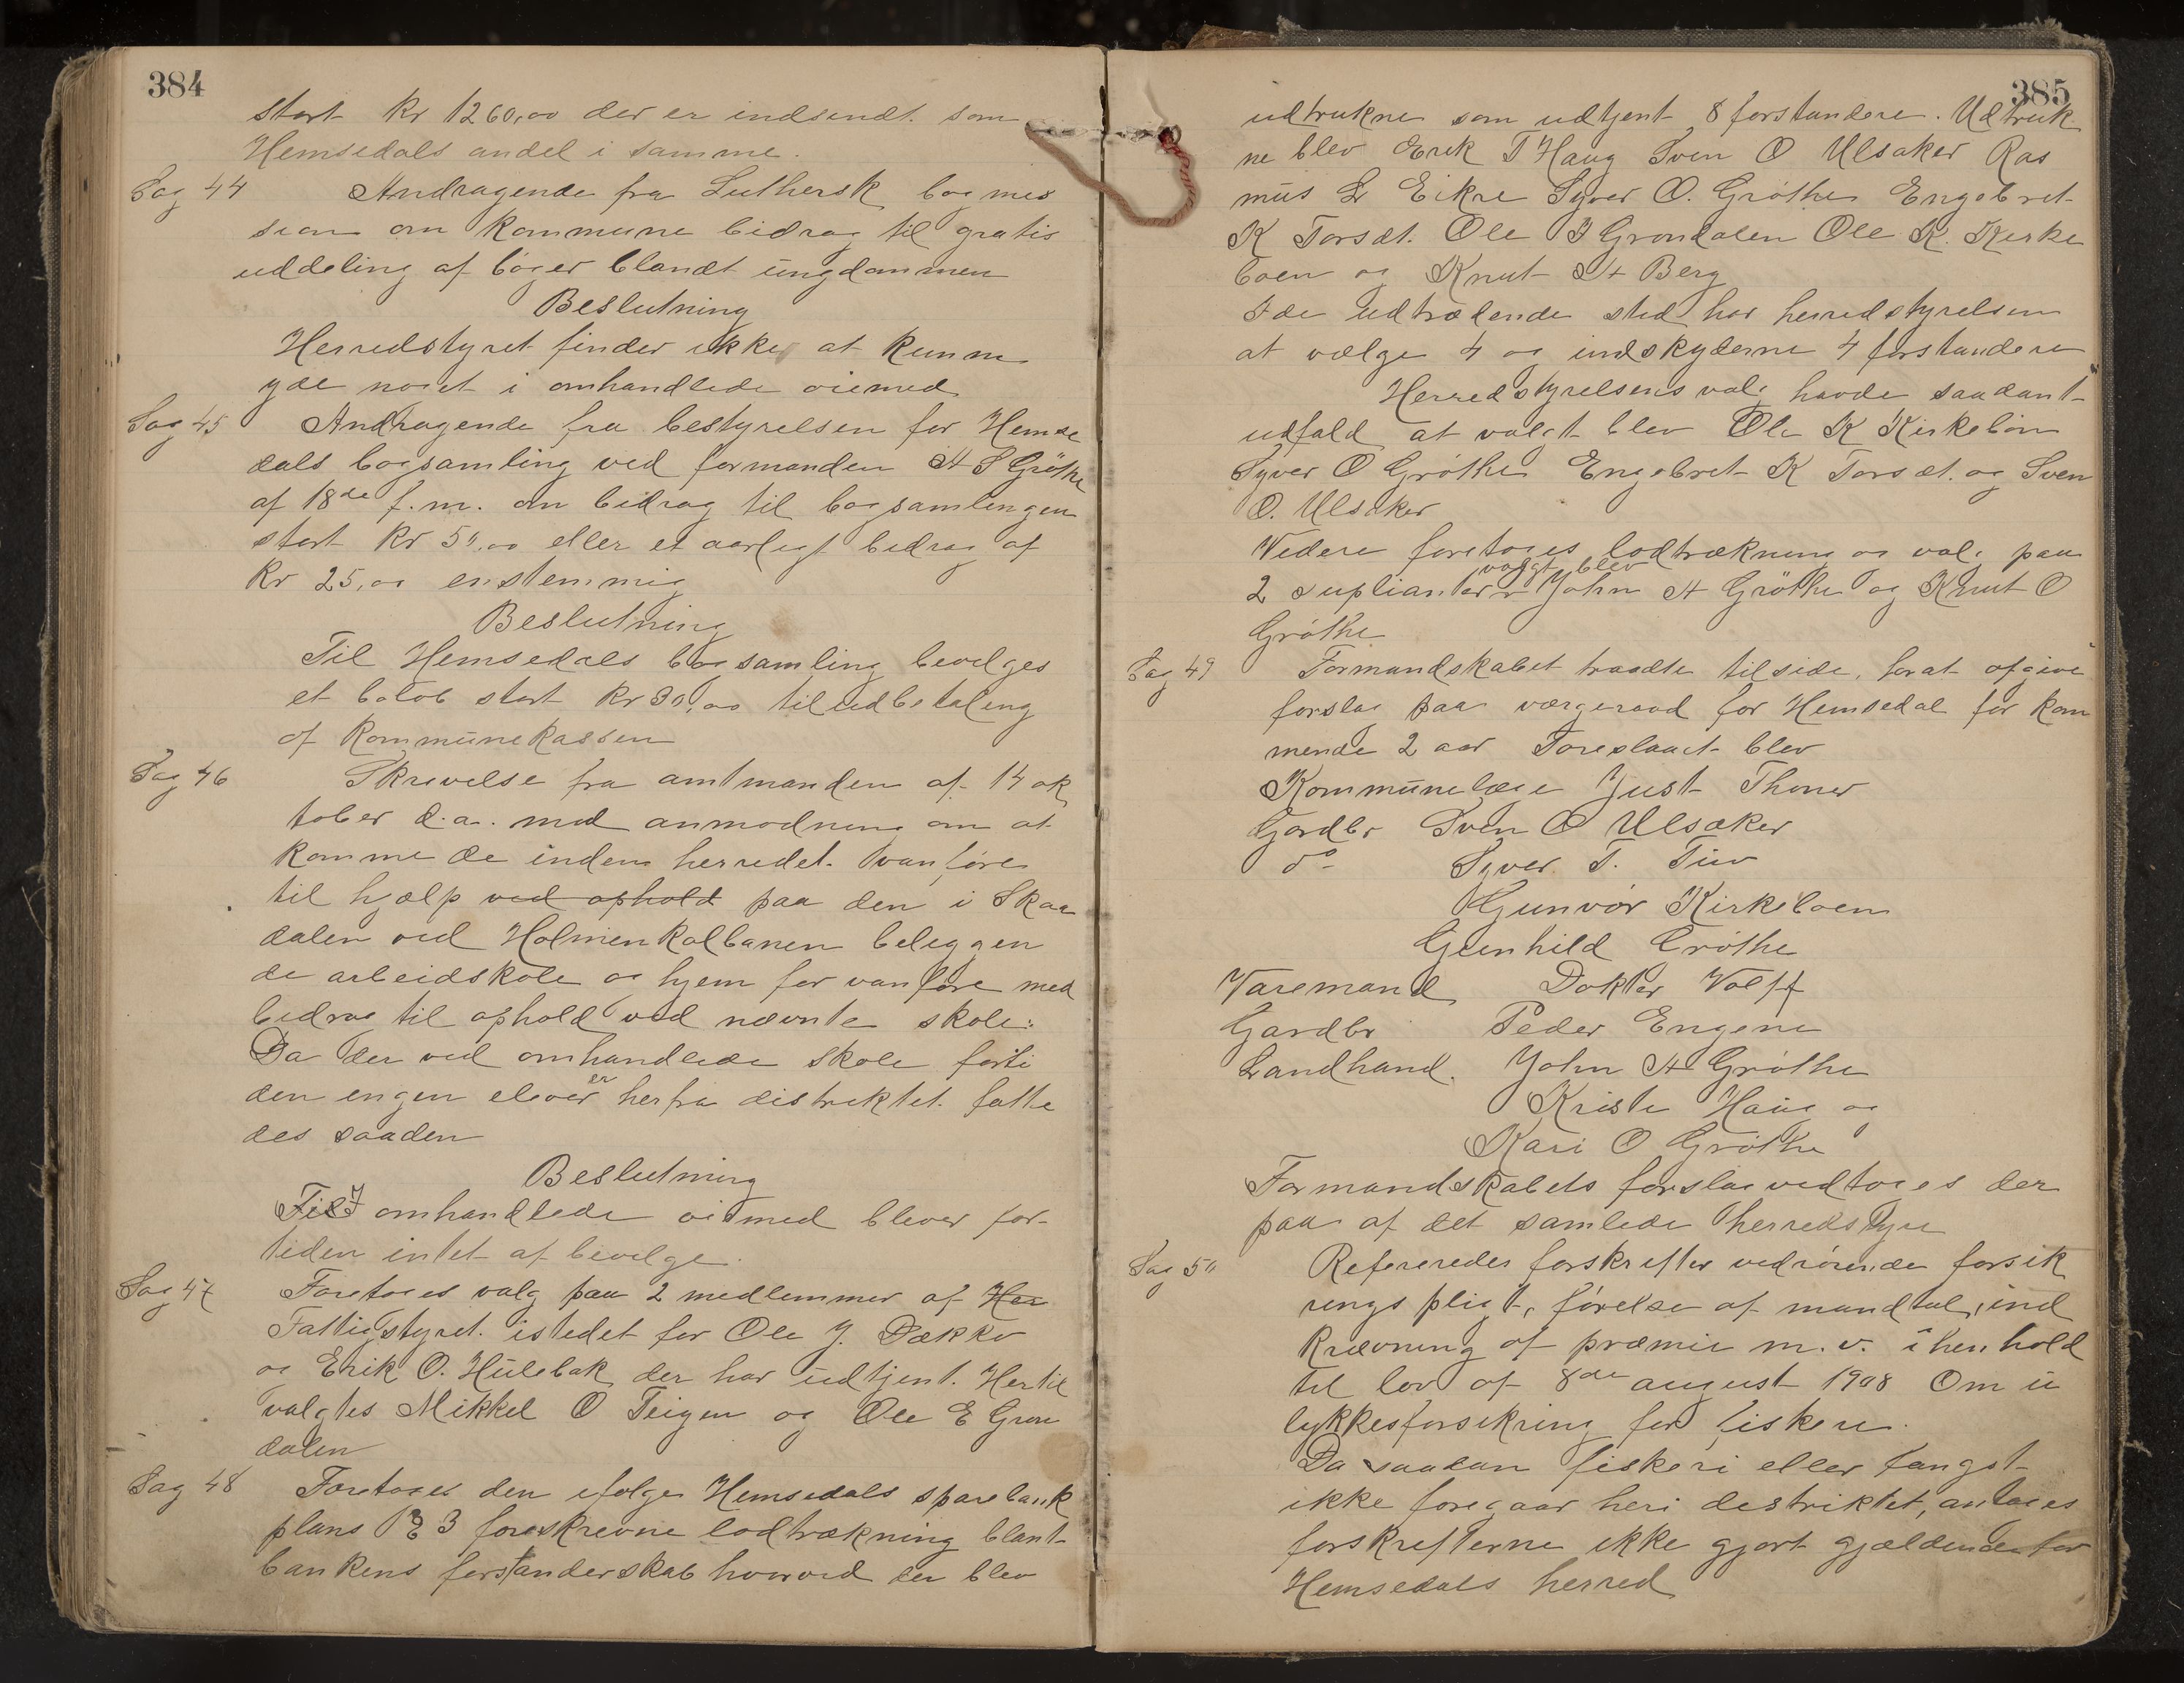 384
stort Kr 1260,00 der er indsendt som
Hemsedals andel i samme.
Sag 44 Andragende fra Luthersk bogmis
sion om kommune bidrag til gratis
uddeling af bøger blandt ungdommen
Beslutning
Herredstyret finder ikke at kunne
yde noget i omhandlede øiemed
Sag 45 Andragende fra bestyrelsen for Hemse
dals bogsamling ved formanden H S Grøthe
af 18de f.m. om bidrag til bogsamlingen
stort Kr 50,00 eller et aarligt bidrag af
Kr 25,00 enstemmig
Beslutning
Til Hemsedals bogsamling bevilges
et beløb stort Kr 30,00 til udbetaling
af Kommunekassen
Sag 46 Skrivelse fra amtmanden af 14 ok
tober d.a. med anmodning om at
komme de inden herredet vanføre
til hjælp ved ophold paa den i Skaa
dalen ved Holmenkolbanen beliggen
de arbeidskole og hjem for vanføre med
bidrag til ophold ved nævnte skole.
Da der ved omhandlede skole forti
den ingen elever er herfra distriktet fatte
des saaden
Beslutning
Til I omhandlede øiemed blever for-
tiden intet af bevilge.
Sag 47 Foretoges valg paa 2 medlemmer af Her
Fattigstyret istedet for Ole J. Dækko
og Erik O. Hulebak der har udtjent. Hertil
valgtes Mikkel O Teigen og Ole E Grøn
dalen
Sag 48 Foretoges den ifølge Hemsedals sparebank
plans § 3 foreskrevne lodtrækning blant
bankens forstanderskab hvorved der blev
385
udtrukne som udtjent 8 forstandere. Udtruk
ne blev Erik T Haug Sven O Ulsaker Ras
mus L Eikre Syver O. Grøthe Engebret
K Torset. Ole I Grøndalen Ole K. Kirke
boen og Knut H Berg
I de udtrædende sted har herredstyrelsen
at vælge 4 og indskyderne 4 forstandere
Herredstyrelsens valg havde saadant
udfald at valgt blev Ole K Kirkeboen
Syver O Grøthe Engebret K Torset. og Sven
O. Ulsaker
Videre foretoges lodtrækning og valg paa
2 suplianter valgt blev John H Grøthe og Knut O
Grøthe
Sag 49 Formandskabet traadte tilside, forat afgive
forslag paa værgeraad for Hemsedal for kom
mende 2 aar Foreslaaet blev
Kommunelæge Just Thoner
Gardbr Sven O Ulsaker
do Syver T. Tuv
Gunvor Kirkeboen
Gunhild Grøthe
Varemand Doktor Wolff
Gardbr Peder Engene
Landhand. John H Grøthe
Kristi Haug og
Kari O Grøthe
Formandskabets forslag vedtoges der
paa af det samlede herredstyre
Sag 50 Refereredes forskrifter vedrørende forsik
rings pligt, førelse af mandtal, ind
krævning af præmie m.v. i henhold
til lov af 8de august 1908 Om u
lykkesforsikring for fiskere.
Da saadan fiskeri eller fangst
ikke foregaar her i distriktet, antoges
forskrifterne ikke gjort gjældende for
Hemsedals herred